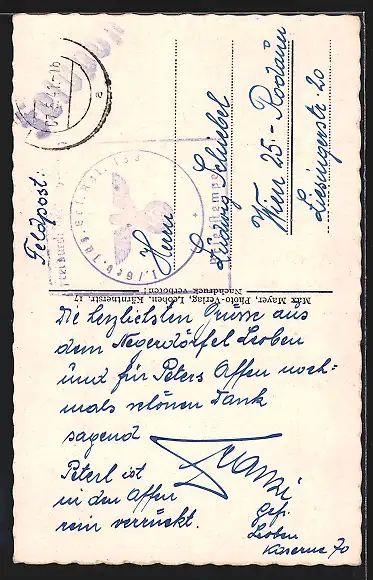 Feldpost.
Herrn
Ludwig Schiebel
Wien 25 - Rodaun
Liesingerstr 20
Max Mayer, Photo-Verlag, Leoben, Kärntnerstr. 17
Nachdruck verboten!
Die herzlichsten Grüsse aus
dem Negerdörfel Leoben
und für Peters Affen noch=
mals schönen Dank
sagend
Franzi
Peterl ist
in den Affen
rein verrückt.
Gefr.
Leoben
Kaserne 70